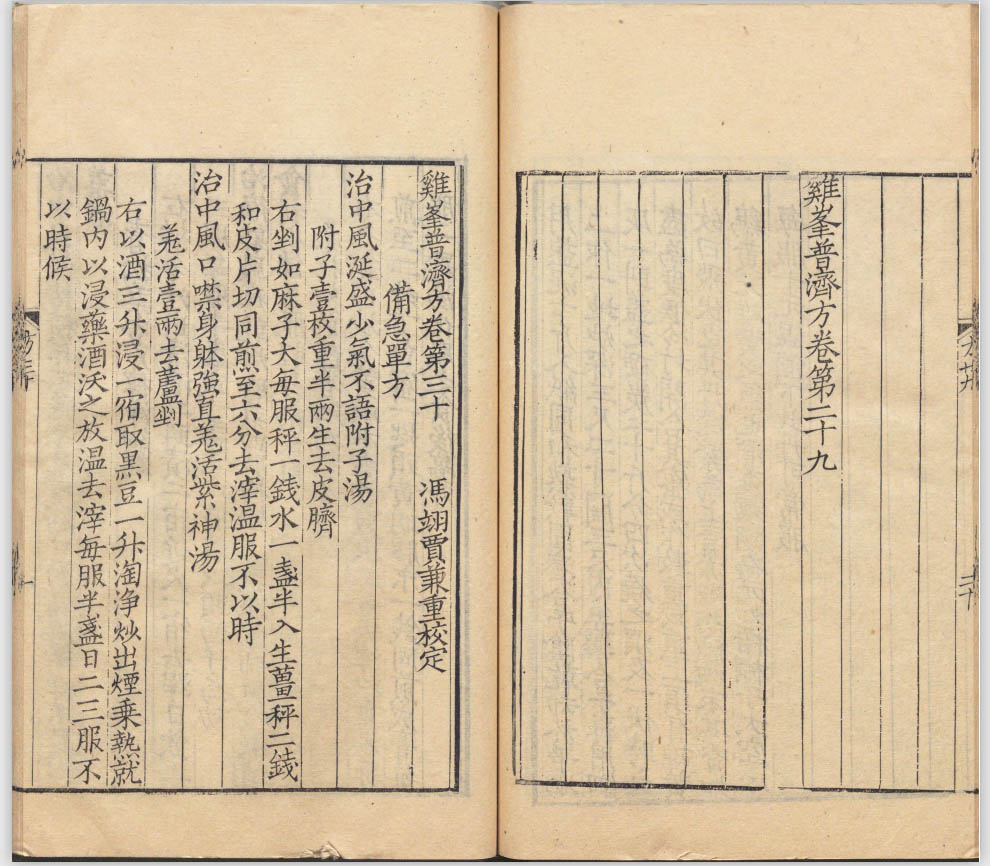 雞峯普濟方卷第二十九
三十
雞峯普濟方卷第三十 馮翊賈兼重校定
備急單方
治中風涎盛少氣不語附子湯
附子壹枚重半兩生去皮臍
右剉如麻子大每服秤一錢水一盞半入生薑秤二錢
和皮片切同煎至六分去滓温服不以時
治中風口噤身躰強直羗活紫神湯
羗活壹兩去蘆剉
右以酒三升浸一宿取黑豆一升淘浄炒出煙乗熱就
鍋内以浸藥酒沃之放温去滓毎服半盞日二三服不
以時候
方三十
一